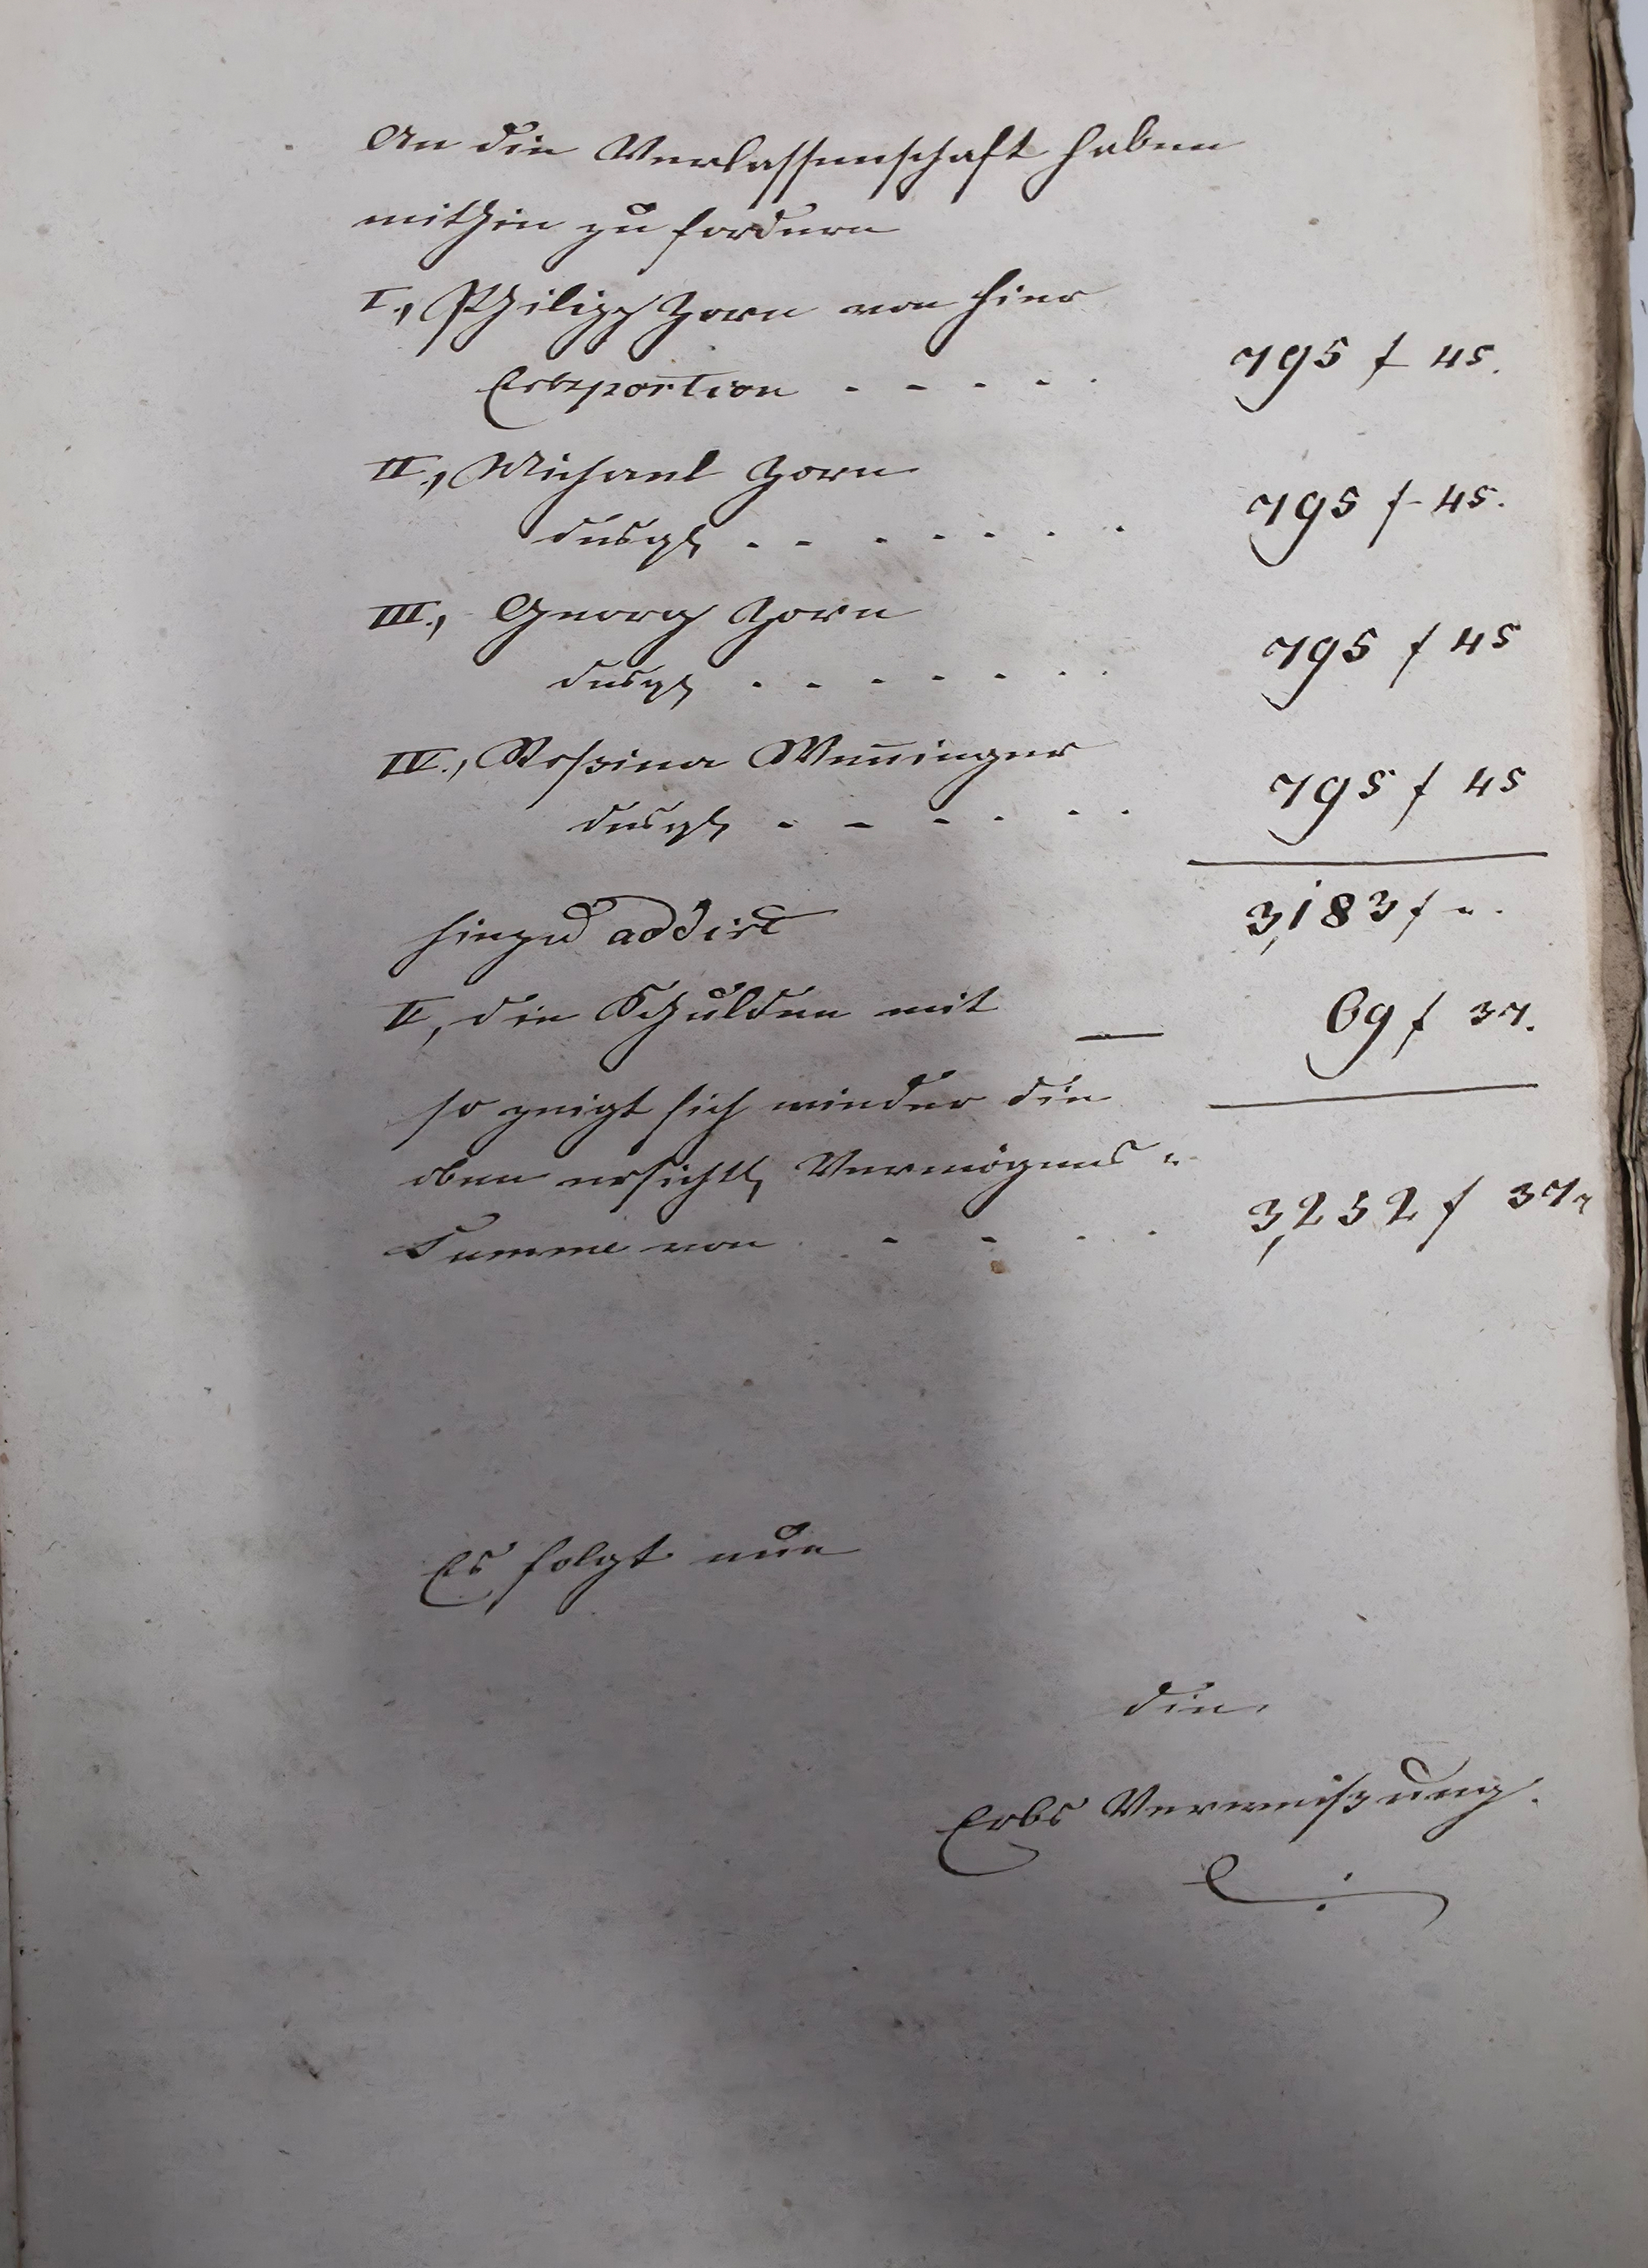 An die Verlassenschaft haben
mithin zu fordern
I., Philipp Zorn von hier
Erbsportion - - - - - 795 f 45.
II., Michael Zorn
desgl - - - - - - - 795 f 45.
III., Georg Zorn
desgl - - - - - - - 795 f 45
IV., Roßina Weninger
desgl - - - - - - 795 f 45
3,183 f ".
hinzu addirt
V, die Schulden mit — 69 f 37.
so zeigt sich wieder die
oben ersichtl Vermögens "
Summe von - - - - 3,252 f 37
Es folgt nun
die
Erbs Verweißung.